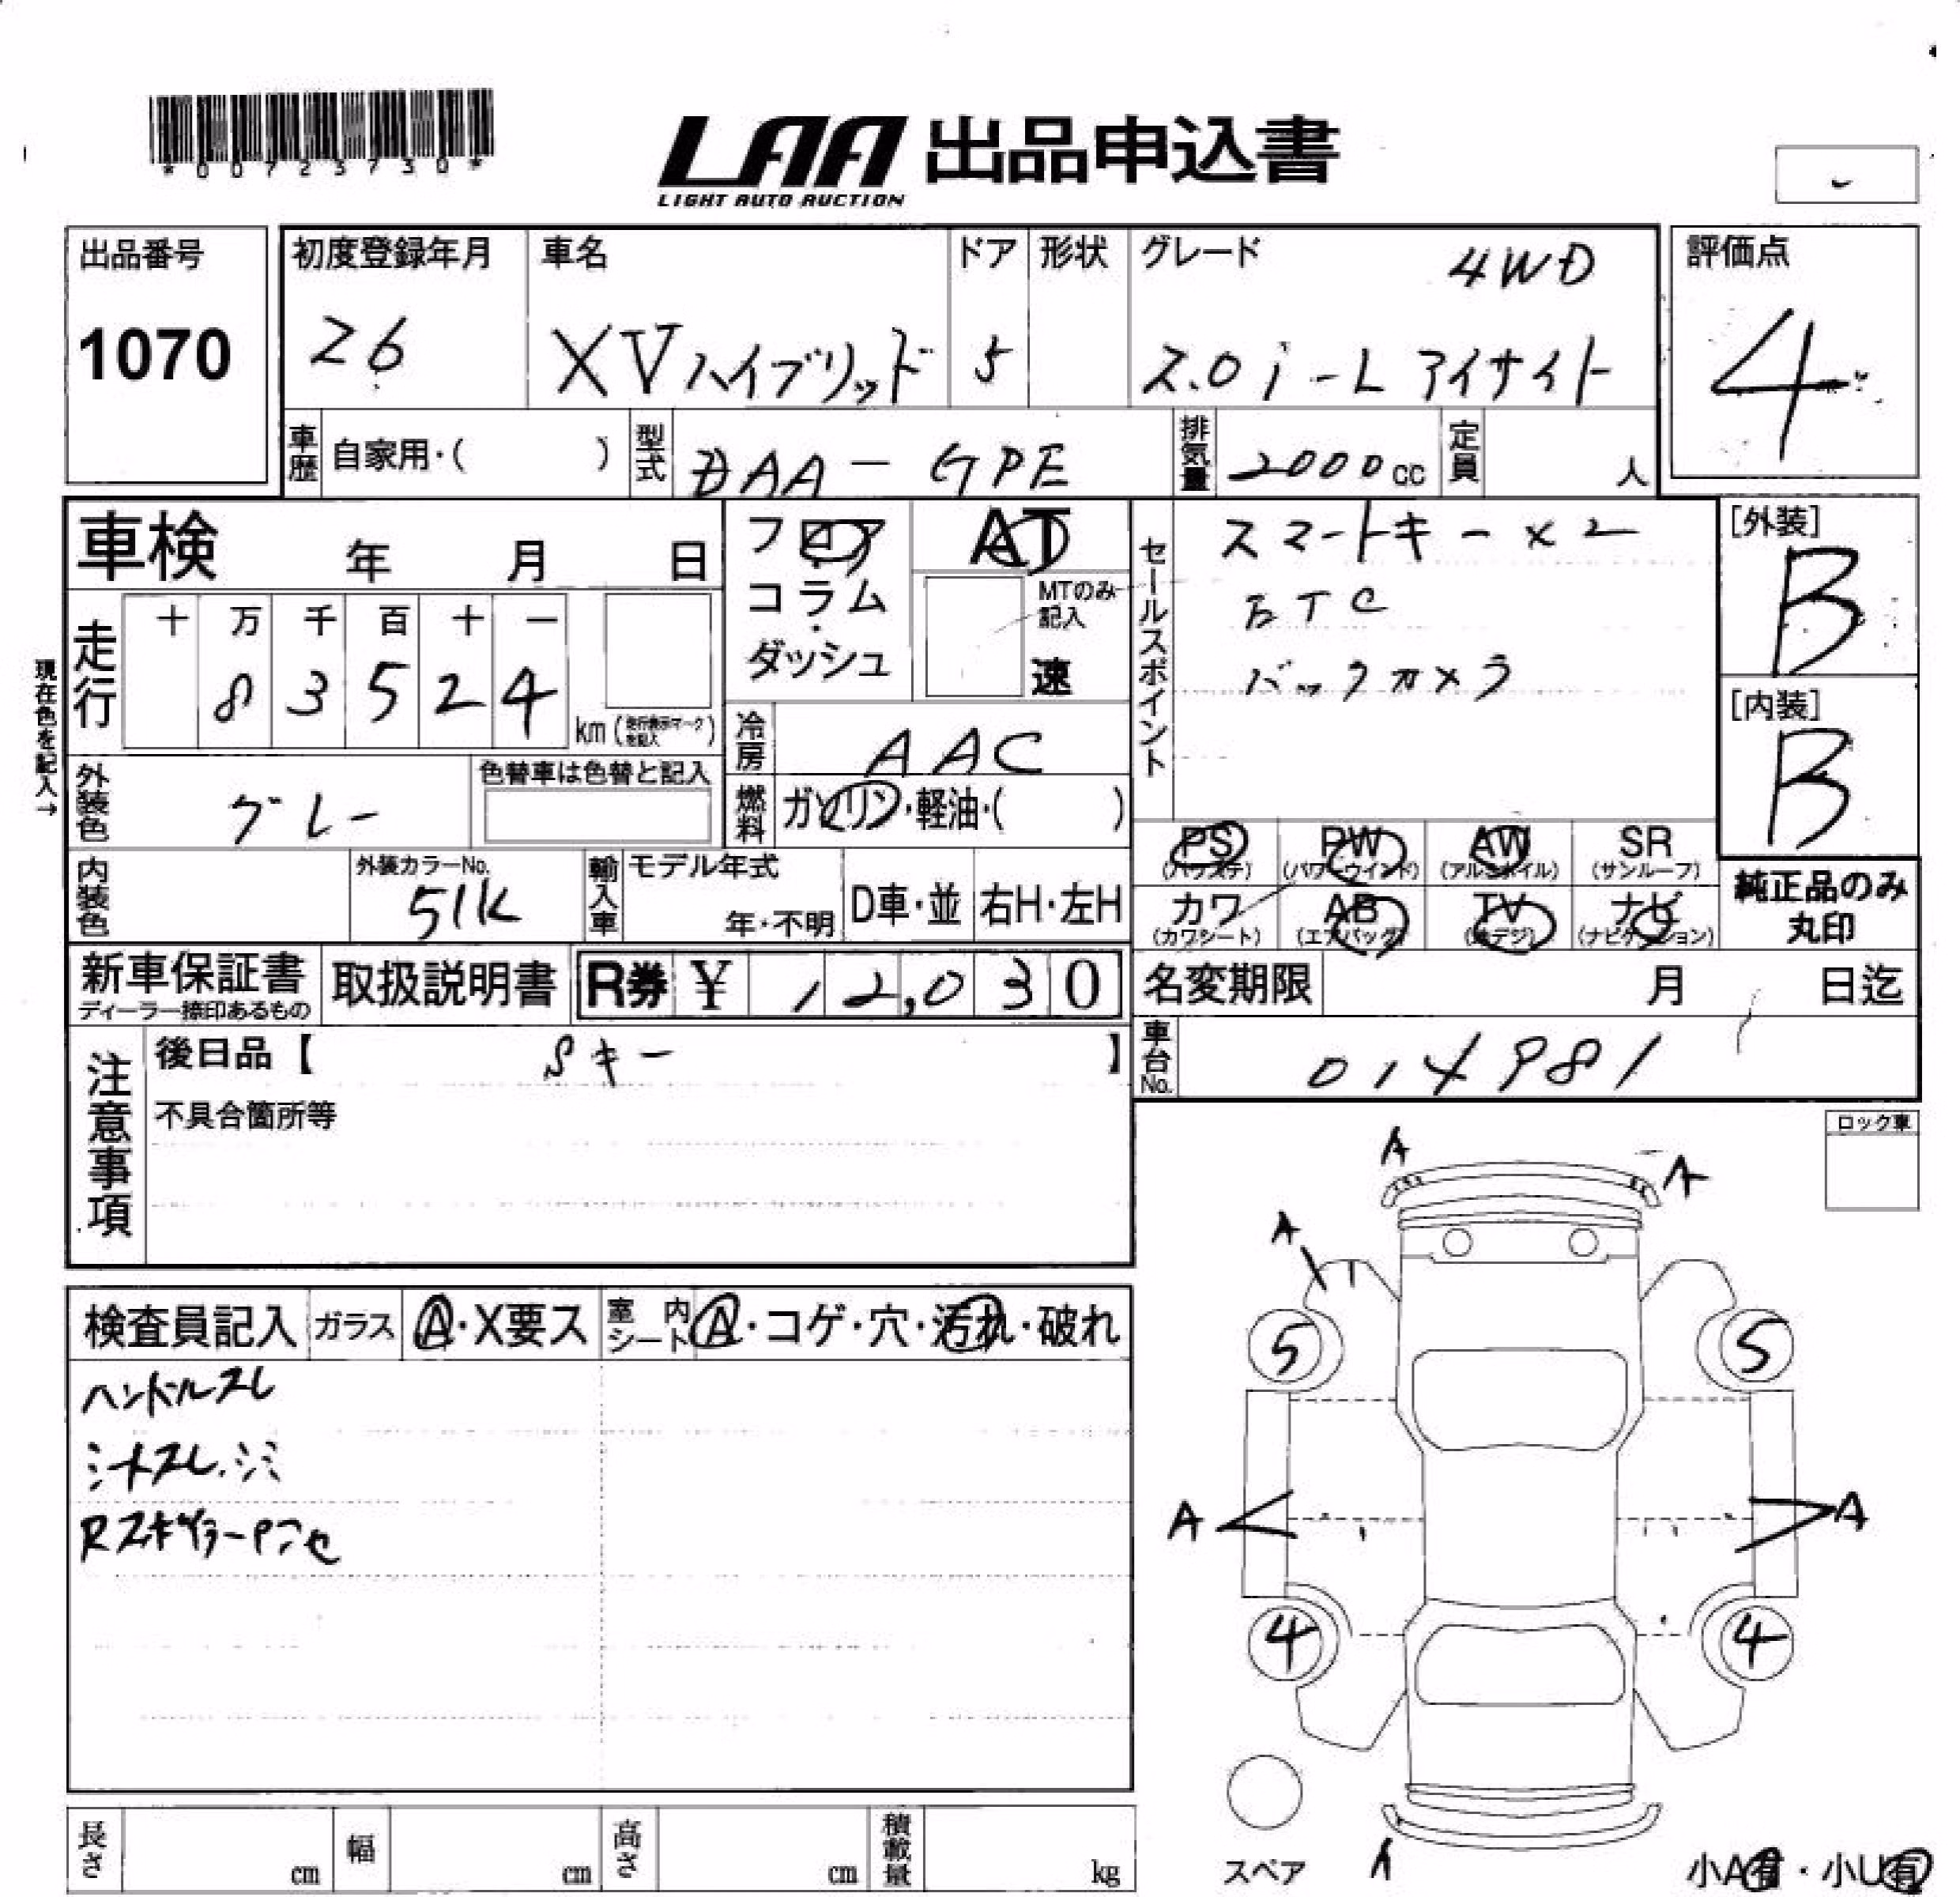 *00723730*
LAA 出品申込書
LIGHT AUTO AUCTION
出品番号
1070
初度登録年月
26
車名
XVハイブリッド
ドア
5
形状
グレード 4WD
2.0i-L アイサイト
評価点
4
車歴 自家用・( )
型式 DAA-GPE
排気量 2000cc
定員 人
車検 年 月 日
フロア
コラム
ダッシュ
AT
MTのみ記入
速
セールスポイント
スマートキー×2
ETC
バックカメラ
[外装]
B
[内装]
B
現在色を記入→
走行 十 万 千 百 十 一
8 3 5 2 4
km (走行表示マークを記入)
冷房 AAC
外装色 グレー
色替車は色替と記入
燃料 ガソリン・軽油・( )
PS (パワステ)
PW (パワーウインド)
AW (アルミホイル)
SR (サンルーフ)
カワ (カワシート)
AB (エアバッグ)
TV (地デジ)
ナビ (ナビゲーション)
純正品のみ
丸印
内装色
外装カラーNo.
51K
輸入車
モデル年式
年・不明
D車・並
右H・左H
新車保証書
ディーラー捺印あるもの
取扱説明書
R券 ¥ 12,030
名変期限 月 日迄
車台No. 014981
注意事項
後日品【 Sキー 】
不具合箇所等
ロック車
検査員記入
ガラス A・X要ス
室内シート A・コゲ・穴・汚れ・破れ
ハンドルスレ
シートスレ.シミ
A
A
A
5
5
A
A
4
4
スペア
A
小A有・小U有
長さ cm
幅 cm
高さ cm
積載量 kg